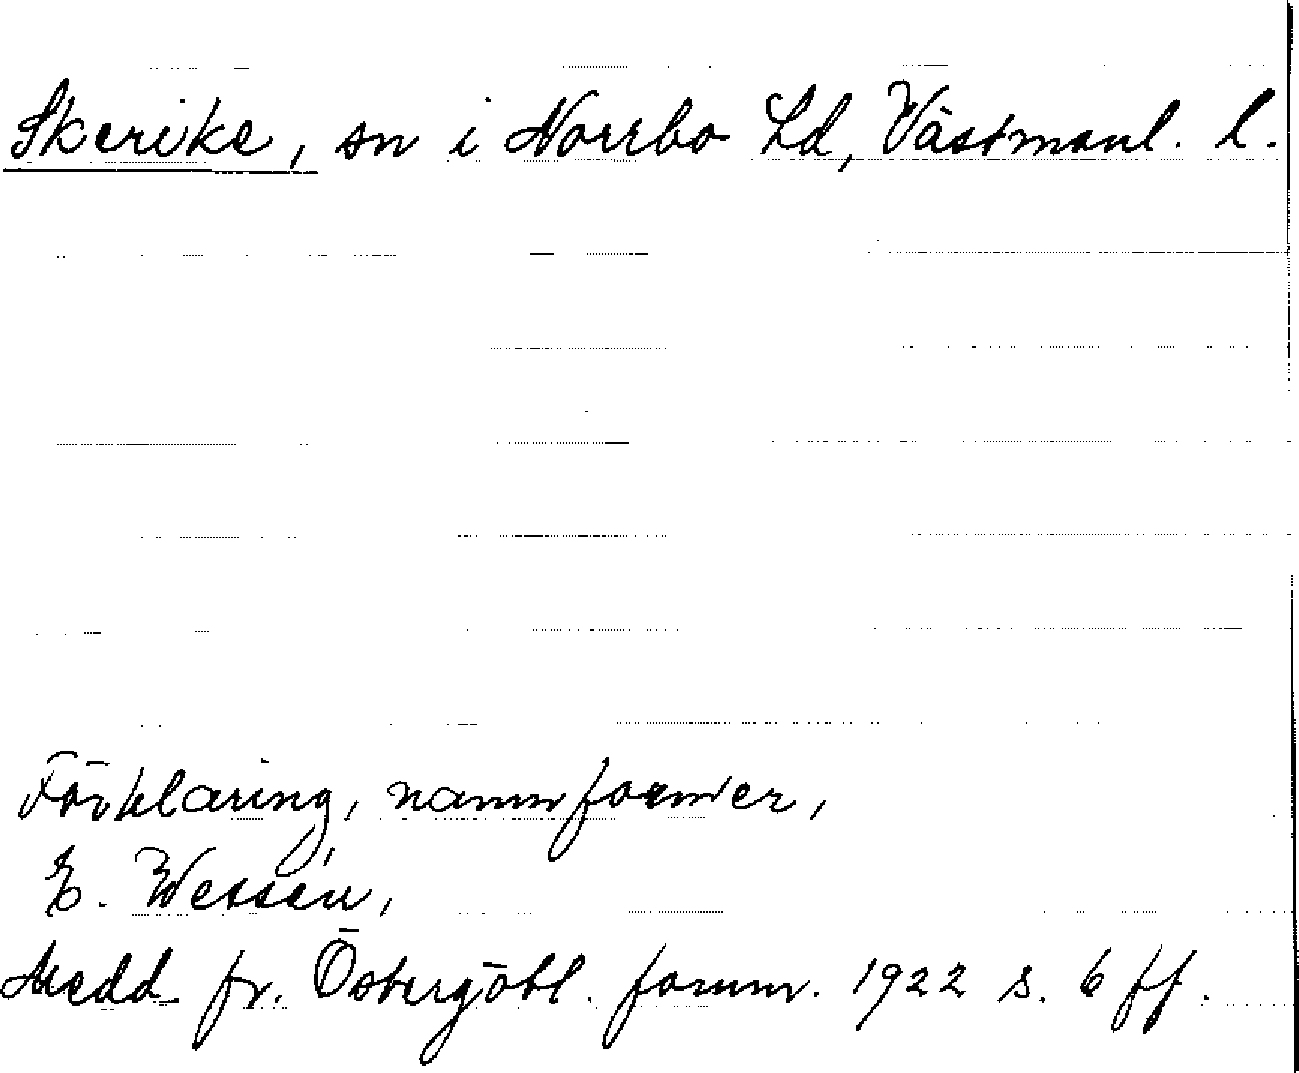 Skerike, sn i Norrbo hd, Västmanl. l.
Förklaring, namnformer,
E. Wessén,
Medd fr. Östergötl. fornm. 1922 s. 6 ff.